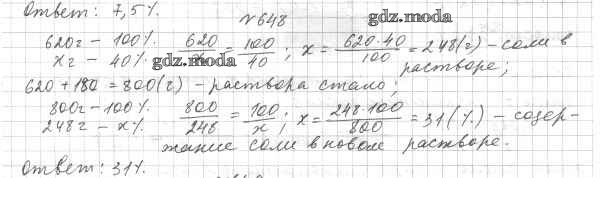 Ответ: 7,5%.
№648
gdz.moda
620г – 100%. 620/x = 100/40; x = 620·40/100 = 248(г) – соли в
xг – 40%.
gdz.moda
растворе;
620 + 180 = 800(г) – раствора стало;
800г – 100%. 800/248 = 100/x; x = 248·100/800 = 31(%) – содер-
248г – x%.
жание соли в новом растворе.
Ответ: 31%.